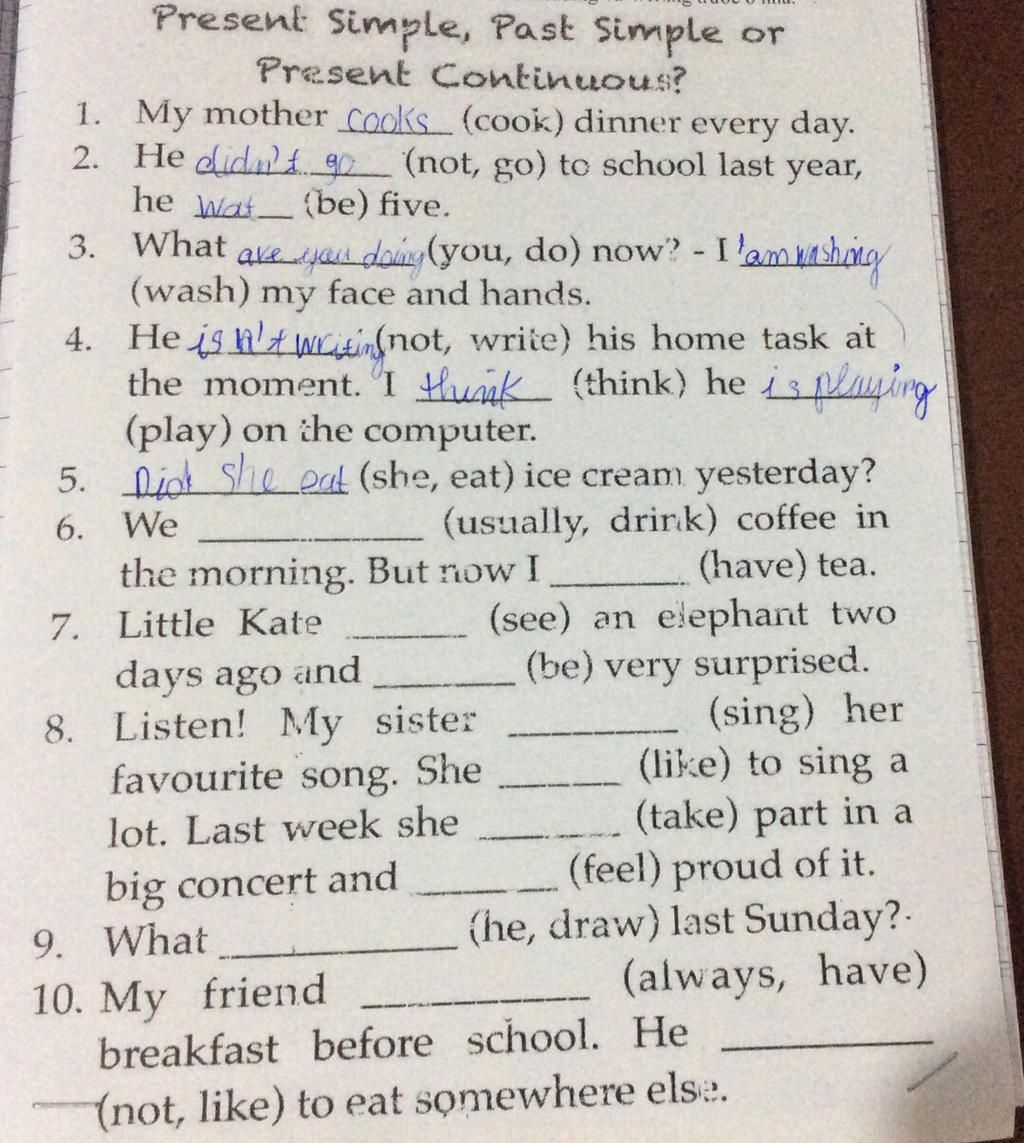 Present Simple, Past Simple or
Present Continuous?
1. My mother cooks (cook) dinner every day.
2. He didn't go (not, go) to school last year,
he wat (be) five.
3. What are you doing (you, do) now? - I 'am washing
(wash) my face and hands.
4. He is n't writing (not, write) his home task at
the moment. I think (think) he is playing
(play) on the computer.
5. Did she eat (she, eat) ice cream yesterday?
6. We ____________ (usually, drink) coffee in
the morning. But now I ________ (have) tea.
7. Little Kate _______ (see) an elephant two
days ago and ________ (be) very surprised.
8. Listen! My sister __________ (sing) her
favourite song. She _______ (like) to sing a
lot. Last week she ________ (take) part in a
big concert and ________ (feel) proud of it.
9. What ______________ (he, draw) last Sunday?
10. My friend _____________ (always, have)
breakfast before school. He ____________
(not, like) to eat somewhere else.